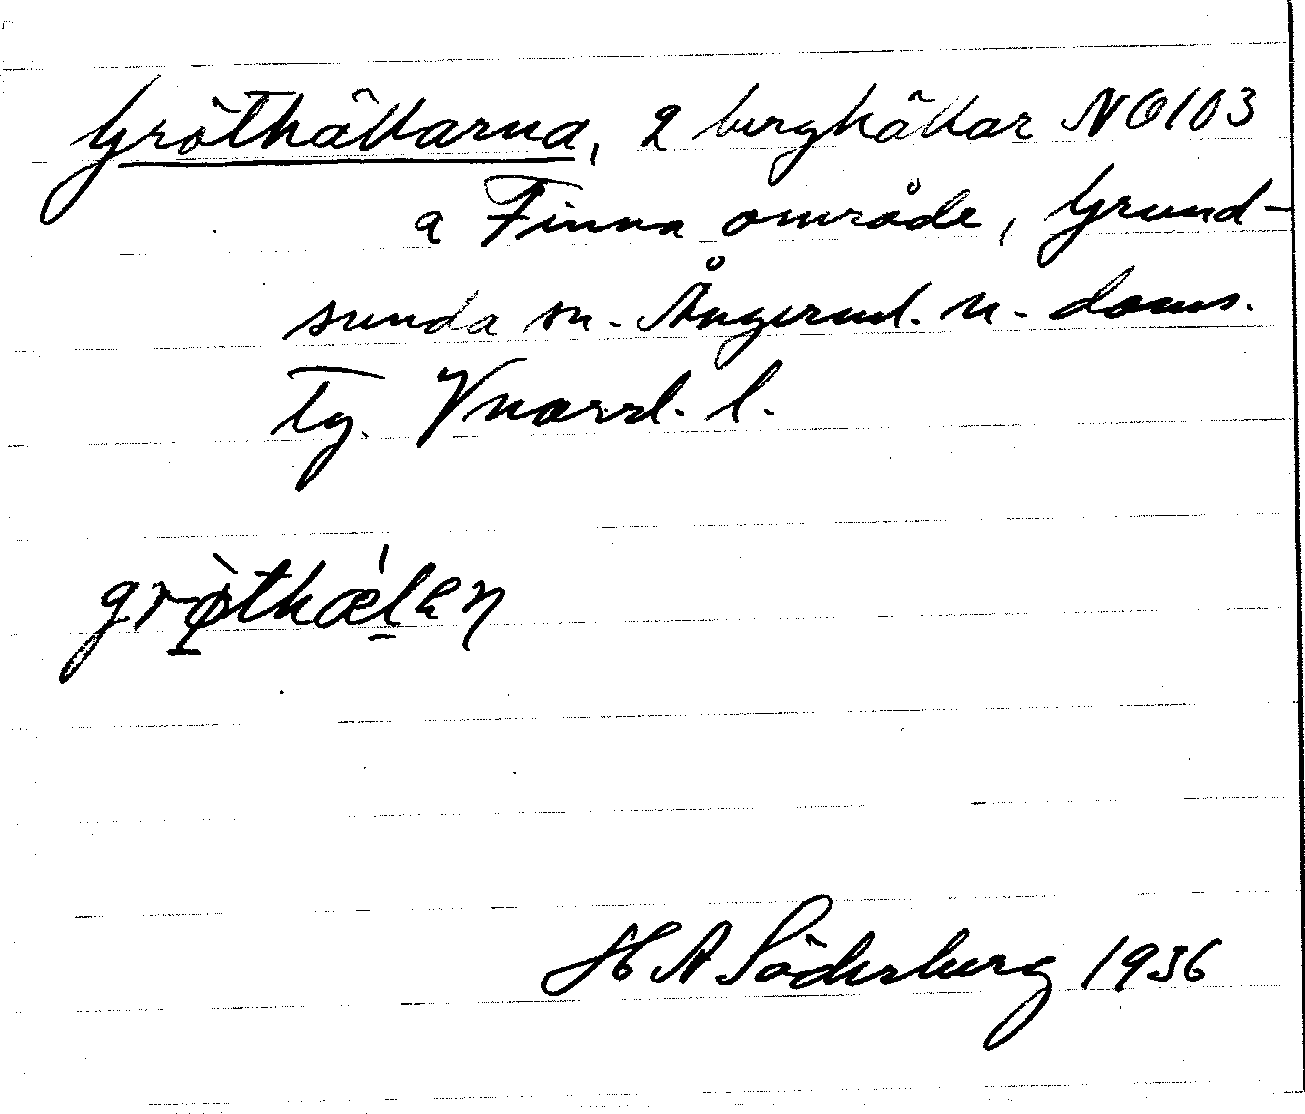 Gröthällarna, 2 berghällar NO103
a Finna område, Grund-
sunda sn. Ångerml. n. doms.
tg. Vnorrl. l.
grøthælan
H A Söderberg 1936